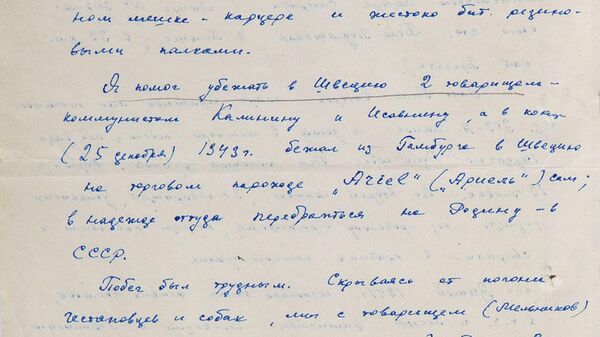 ном мешке - карцере и жестоко бит резино-
выми палками.
Я помог убежать в Швецию 2 товарищам-
коммунистам Калинину и Исавнину, а в конце
(25 декабря) 1943г. бежал из Гамбурга в Швецию
на торговом пароходе „Ariel" („Ариель") сам;
в надежде оттуда перебраться на Родину - в
СССР.
Побег был трудным. Скрываясь от погони
гестаповцев и собак, мы с товарищем (Мельников)